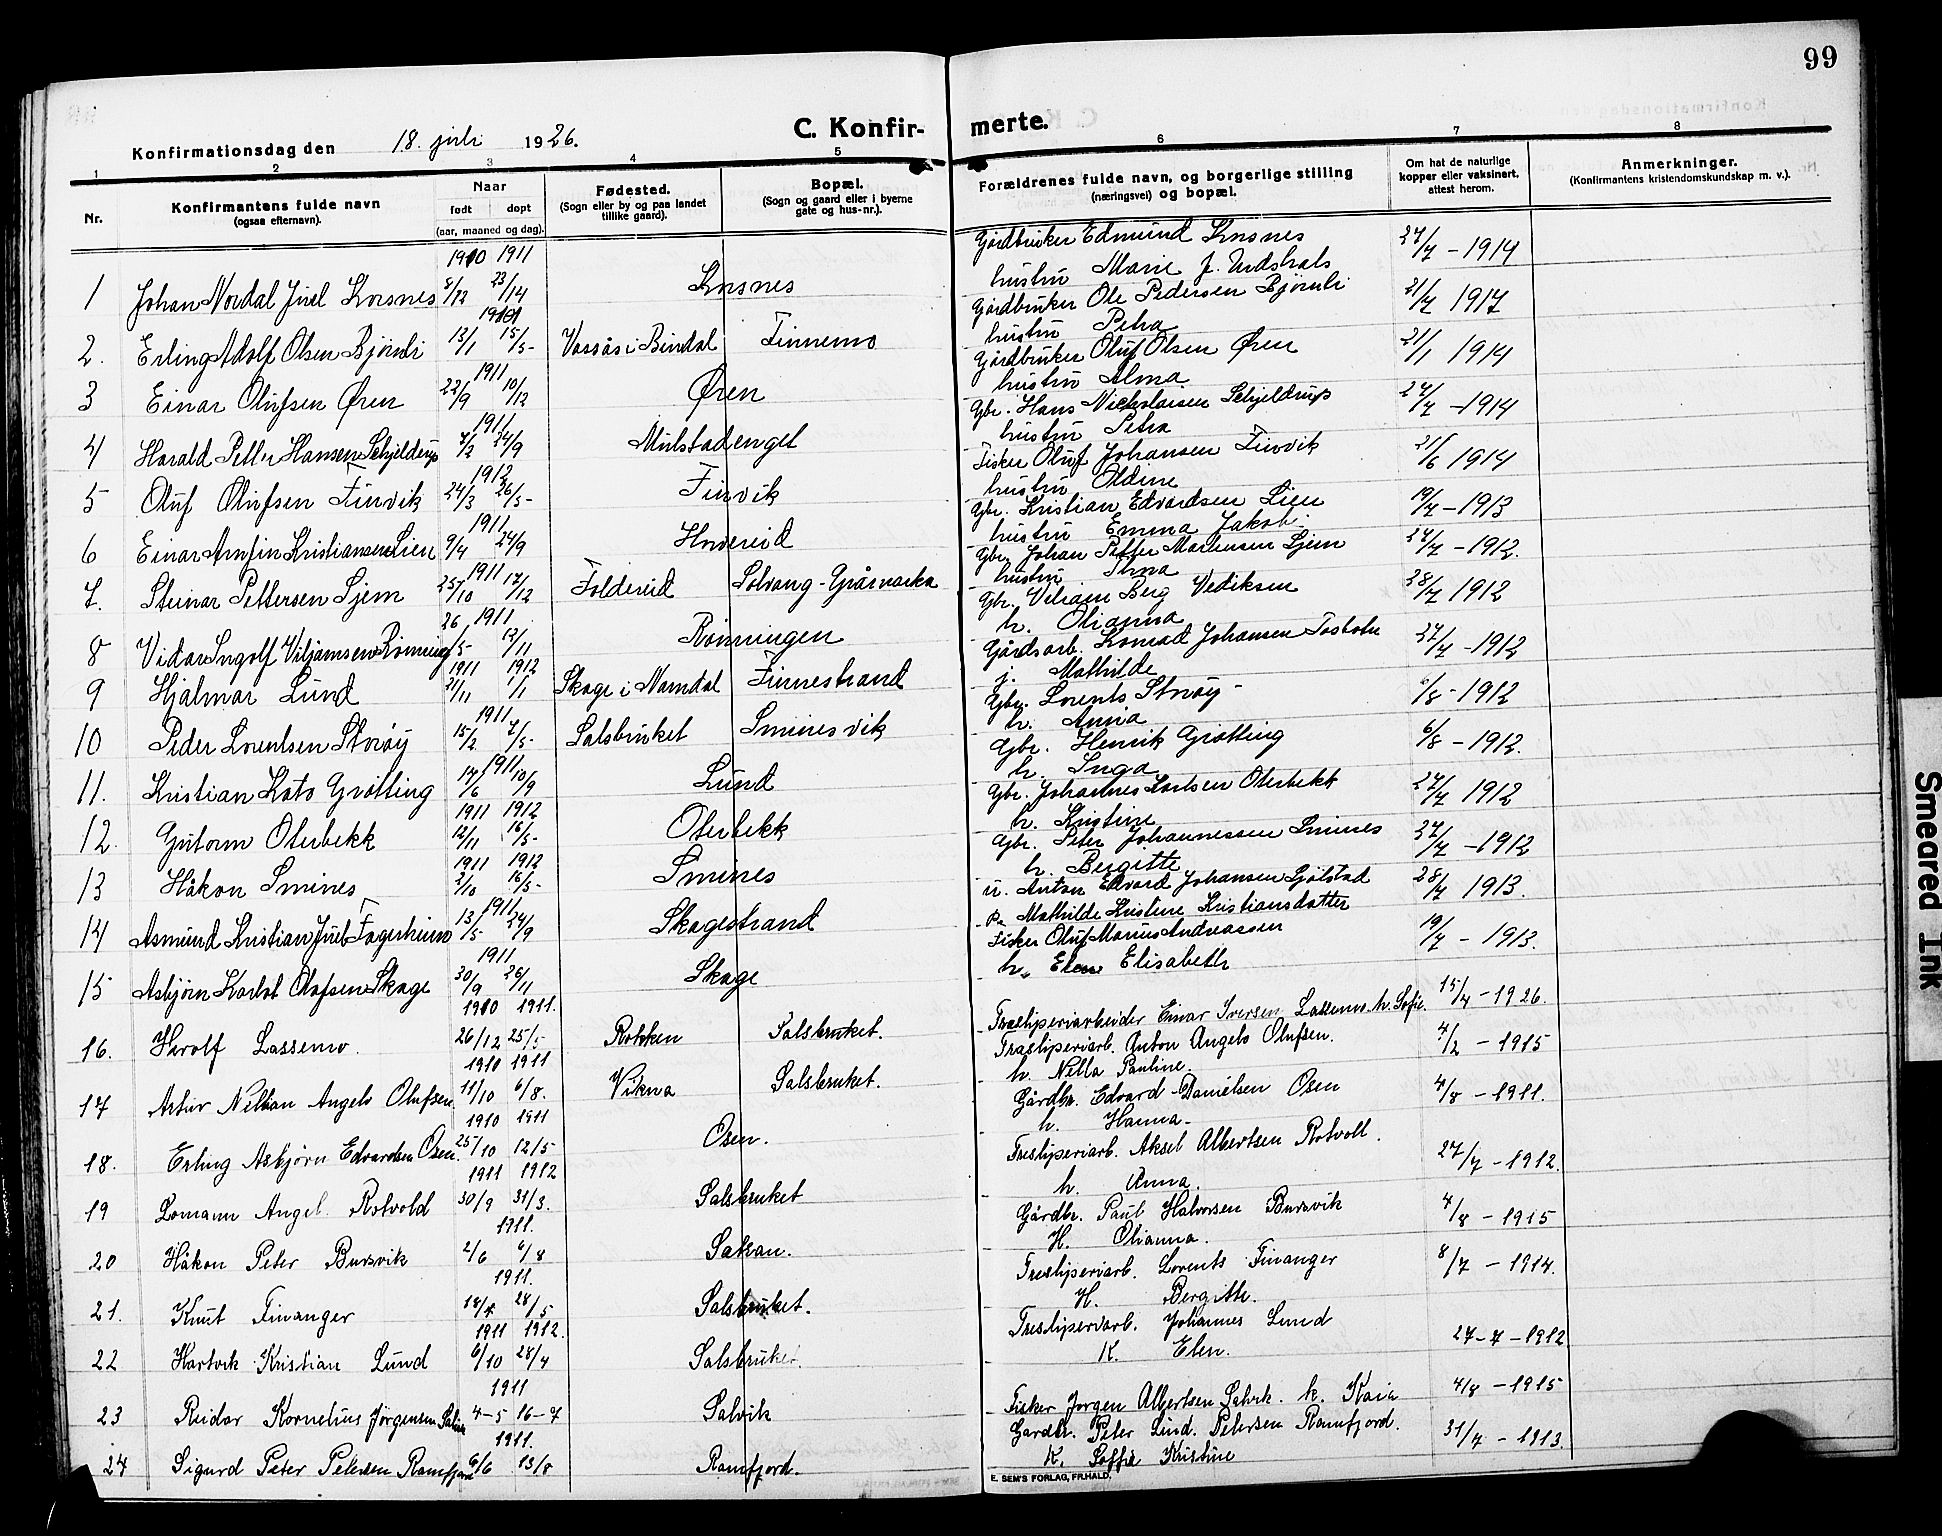 99
C. Konfirmerte.
Konfirmationsdag den 18. juli 1926.
1 2 3 4 5 6 7 8
Nr. Konfirmantens fulde navn (ogsaa efternavn). Naar født døpt (aar, maaned og dag). Fødested. (Sogn eller by og paa landet tillike gaard). Bopæl. (Sogn og gaard eller i byerne gate og hus-nr.). Forældrenes fulde navn, og borgerlige stilling (næringsvei) og bopæl. Om hat de naturlige kopper eller vaksinert, attest herom. Anmerkninger. (Konfirmantens kristendomskundskap m. v.).
1910 1911 Gårdbruker Edmund Korsnes 27/7 - 1914
1 Johan Nordal Juel Korsnes 8/12 23/14 Korsnes hustru Marie J.
Gårdbruker Ole Pedersen Bjørnli 21/7 1917
2. Erling Adolf Olsen Bjørnli 13/1 15/5 Vassås i Bindal Finnemo hustru Petra
1911 Gårdbruker Oluf Olsen Øren 21/1 1914
3 Einar Olufsen Øren 22/9 10/12 Øren hustru Alma
1911 Gbr. Hans Nickolaisen Schjeldrup 27/7 - 1914
4 Harald Petter Hansen Schjeldrup 7/2 24/9 Mulstadenget hustru Petra
1912 Fisker Oluf Johansen Finvik 21/6 1914
5 Oluf Olufsen Finvik 24/3 26/5 Finvik hustru Oldine
1911 Gbr. Kristian Edvardsen Lien 19/7 - 1913
6 Einar Arnfin Kristiansen Lien 9/4 24/9 Horereid hustru Emma Jakob.
1911 Gbr. Johan Petter Martensen Sjem 27/7 - 1912.
7. Steinar Pettersen Sjem 25/10 17/12 Foldereid Solvang - Gråmarka hustru Alma
1911 Gbr. Viljam Berg Vediksen 28/7 1912
8 Vidar Ingolf Viljamsen Rønning 26/5 12/11 Rønningen h. Olianna
1911 1912 Gårdsarb. Konrad Johansen 27/7 - 1912
9 Hjalmar Lund 21/11 1/1 Skage i Namdal Finnestrand j. Mathilde
1911 Gbr. Lorents Storøy /8 - 1912
10 Peder Lorentsen Storøy 15/2 7/5 Salsbruket Sminesvik h. Anna
1911 Gbr. Henrik Grøtting 6/8 - 1912.
11. Kristian Kato Grøtting 17/6 10/9 Lund h. Inga
1911 1912 Gbr. Johannes Karlsen Oterbekk 27/7 1912
12. Gutorm Oterbekk 12/11 16/5 Oterbekk h. Kristine
1911 1912 Gbr. Peter Johannessen Smines 27/7 - 1912
13 Håkon Smines 3/10 16/5 Smines h. Bergitte
1911 u. Anton Edvard Johansen Gjølstad 28/7 1913.
14 Asmund Kristian Juel Fagerheim 13/5 24/9 Skagestrand p. Mathilde Kristine Kristiansdatter
1911 Fisker Oluf Marius Andreassen 19/7 - 1913.
15 Asbjørn Karlot Olafsen Skage 30/9 26/11 Skage h. Elen Elisabeth
1910 1911. Træsliperiarbeider Einar Iversen Lassemo. h. Sofie. 15/7 - 1926.
16. Herolf Lassemo. 26/12 25/5 Rokken Salsbruket. Træsliperiarb. Anton Angels Olufsen. 4/2 - 1915
1910 1911 h. Nella Pauline.
17 Artur Nelian Angels Olufsen 11/10 6/8. Vikna Salsbruket. Gårdbr. Edvard Danielsen Osen 4/8 - 1911.
1910 1911 h. Hanna.
18. Erling Asbjørn Edvardsen Osen. 25/10 12/5 Osen. Tresliperiarb. Aksel Albertsen Rotvoll. 27/7 - 1912.
1911 1912 h. Anna.
19 Lomann Angel Rotvold 30/9 31/3. Salsbruket Gårdbr. Paul Halvorsen Bursvik 4/8 - 1915
1911. H. Olianna.
20 Håkon Peter Bursvik 2/6 6/8 Sakan. Tresliperiarb. Lorents Finanger 8/7 - 1914.
1911. H. Bergitte.
21. Knut Finanger 18/4 28/5 Salsbruket. Tresliperiarb. Johannes Lund 27-7-1912
1911 1912. K. Elen.
22 Hartvik Kristian Lund 6/10 28/4 Salsbruket.
1911 Fisker Jørgen Albertsen Salvik. k. Kaia 4/8 - 1915
23 Reidar Kornelius Jørgensen Salvik 4-5 16-7 Salvik Gårdbr. Peter Lund. Petersen Ramfjord. 31/7 - 1913.
1911. K. Soffie Kristine
24 Sigurd Peter Petersen Ramfjord 6/6 13/8 Ramfjord.
E. SEM'S FORLAG, FR.HALD.
Smeared Ink